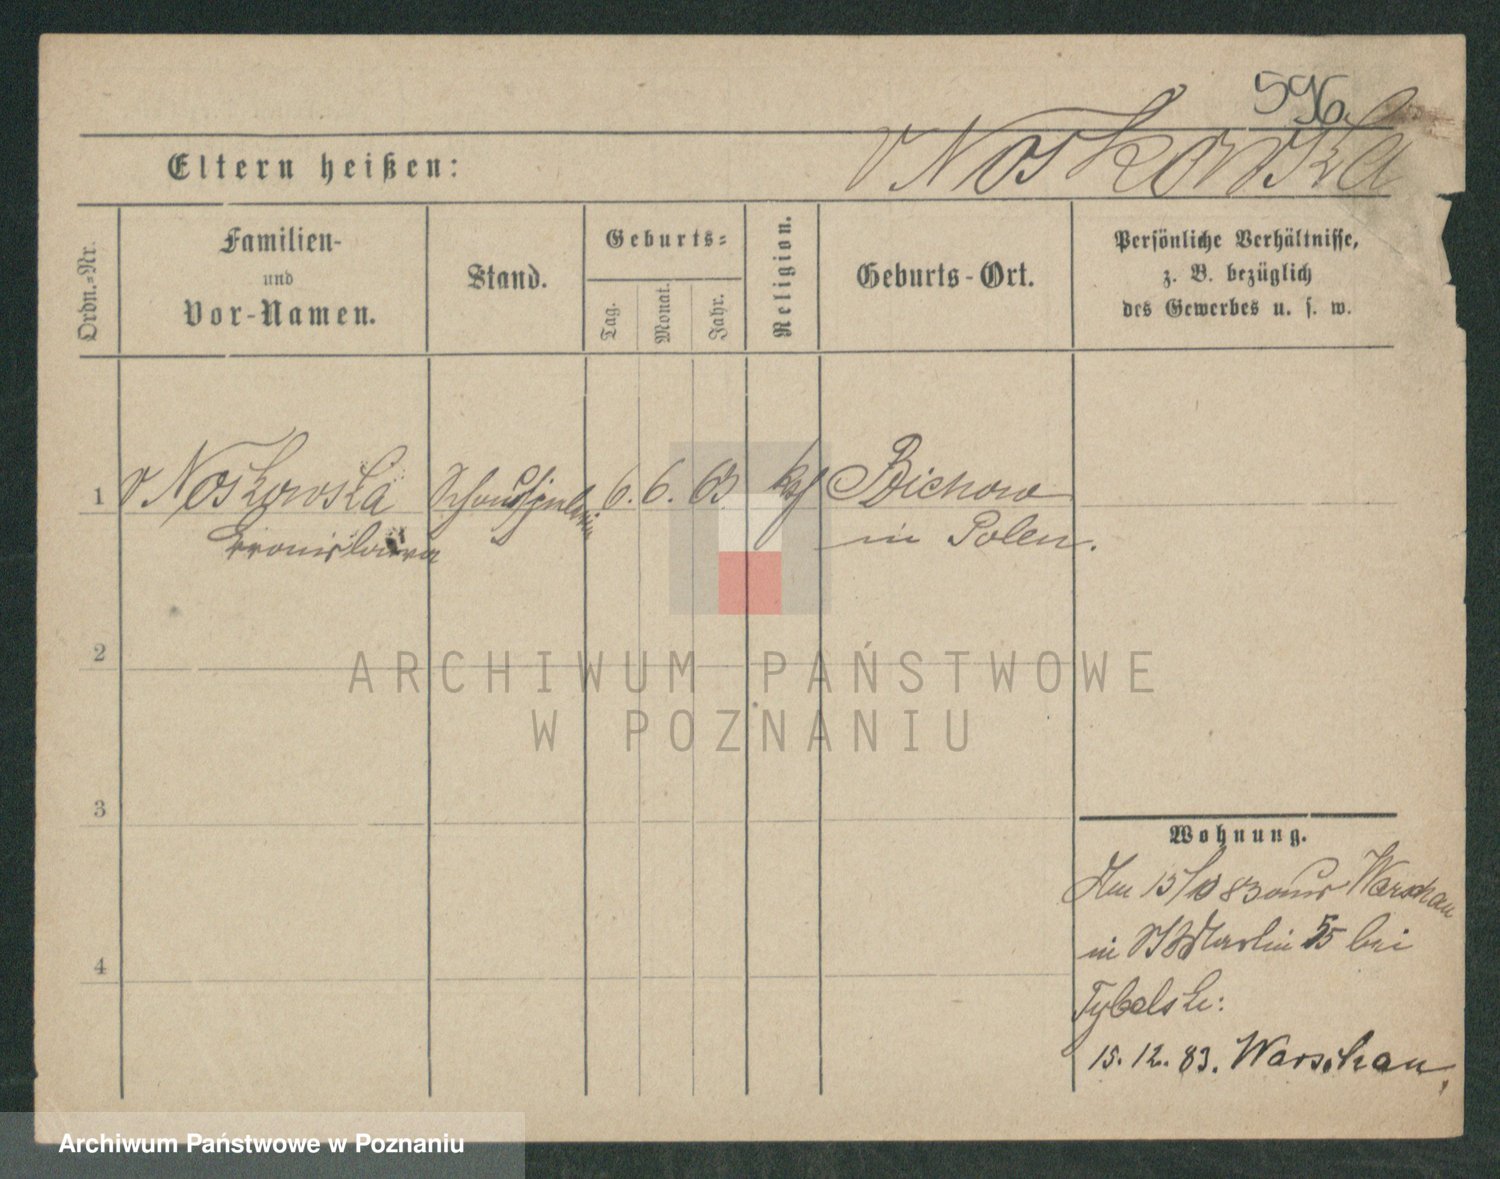 596.
Eltern heißen:
v Noskowska
Ordn.-Nr.
Familien-
und
Vor-Namen.
Stand.
Geburts-
Tag.
Monat.
Jahr.
Religion.
Geburts-Ort.
Persönliche Verhältnisse,
z. B. bezüglich
des Gewerbes u. s. w.
1 v Noskowska Schauspielerin 6. 6. 63 kath Bichow
Bronislawa in Polen.
2
3
4
Wohnung.
Am 15/10 83 aus Warschau
in St Martin 55 bei
Tybelski:
15. 12. 83. Warschau.
ARCHIWUM PAŃSTWOWE
W POZNANIU
Archiwum Państwowe w Poznaniu